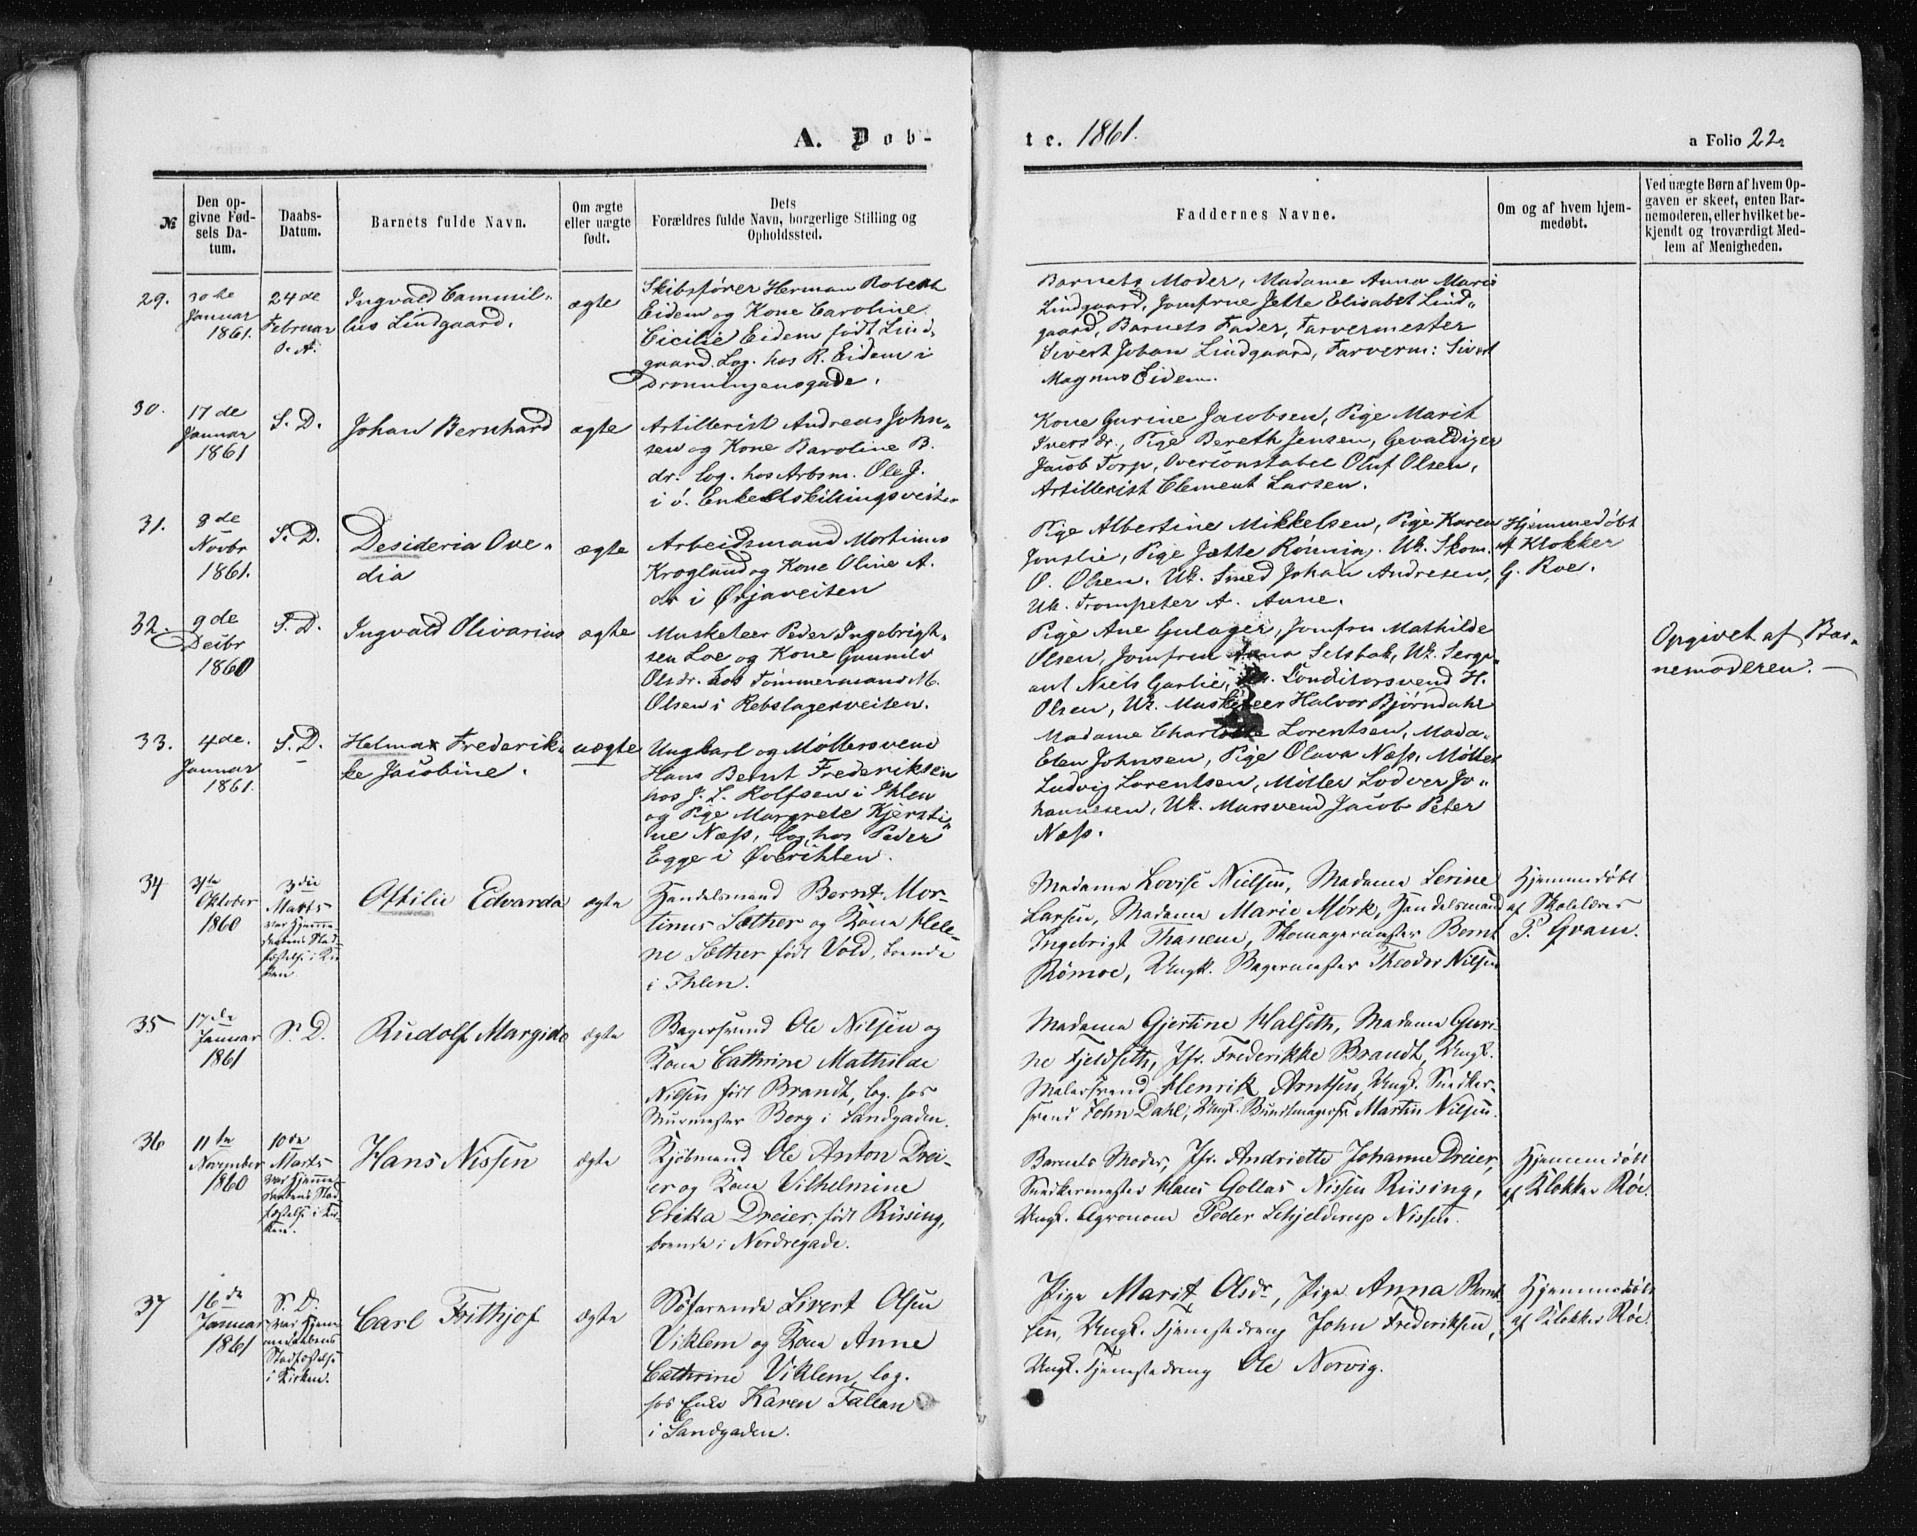 A. Døb-
te. 1861.
a Folio 22
№
Den op-
givne Fød-
sels Da-
tum.
Daabs-
Datum.
Barnets fulde Navn.
Om ægte
eller uægte
født.
Dets
Forældres fulde Navn, borgerlige Stilling og
Opholdssted.
Faddernes Navne.
Om og af hvem hjem-
medøbt.
Ved uægte Børn af hvem Op-
gaven er skeet, enten Bar-
nemoderen, eller hvilket be-
kjendt og troværdigt Med-
lem af Menigheden.
29.
30te
Januar
1861.
24de
Februar
d. A.
Ingvald Cammil-
lus Lindgaard.
ægte
Skibsfører Herman Robert
Eidem og Kone Caroline
Cicilie Eidem født Lind-
gaard. Log. hos R. Eidem i
Dronningensgade.
Barnets Moder, Madame Anna Maria
Lindgaard, Jomfrue Jette Elisabet Lind-
gaard, Barnets Fader, Farvermester
Sivert Johan Lindgaard, Farverm: Sivert
Magnus Eidem.
30.
17de
Januar
1861
S. D.
Johan Bernhard
ægte
Artillerist Andreas John-
sen og Kone Caroline B.
dr. Log. hos Arbsm. Ole J.
i ö. Enkeltskillingsveite.
Kone Gurine Jacobsen, Pige Marit
Iversdr., Pige Bereth Jensen, Gevaldiger
Jacob Torp, Overconstabel Oluf Olsen,
Artillerist Clement Larsen.
31.
8de
Novbr
1861.
S. D.
Desideria Ove-
dia
ægte
Arbeidsmand Mortinus
Kroglund og Kone Oline A.
dr i Ørjaveiten
Pige Albertine Mikkelsen, Pige Karen
Jonslie, Pige Jætte Römnia. Uk. Skom.
O. Olsen. Uk. Smed Johan Andresen,
Uk. Trompeter A. Aune.
Hjemmedøbt
af Klokker
G. Roe.
32.
9de
Decbr
1860
S. D.
Ingvald Olivarius
ægte
Musketeer Peder Ingebrigt-
sen Loe og Kone Gunnild
Olsdr. hos Tömmermand M.
Olsen i Rebslagerveiten.
Pige Ane Gulager, Jomfru Mathilde
Olsen, Jomfrue Anna Selsbak, Uk. Serge-
ant Niels Garlie, Uk. Conditorsvend H.
Olsen, Uk. Musketeer Halvor Bjørndahl
Opgivet af Bar-
nemoderen. —
33.
4de.
Januar
1861.
S. D.
Helma Frederik-
ke Jacobine.
uægte
Ungkarl og Møllersvend
Hans Bernt Frederiksen
hos J. L. Rolfsen i Ihlen
og Pige Margrete Kjersti-
ne Næss, log. hos Peder
Egge i ØvreIhlen.
Madame Charlotte Lorentsen, Mada-
Elen Johnsen, Pige Olava Næss, Møller
Ludvig Lorentsen, Møller Lodver Jo-
hannesen, Uk. Mursvend Jacob Peter
Næss.
34
Oktober
1860
3die
Marts
var Hjemme
daabens Stad-
fæstelse i Kir-
ken
Othilie Edvarda
ægte
Handelsmand Bernt Mor-
tinus Sæther og Kone Hele-
ne Sæther født Vold, boende
i Ihlen.
Madame Lovise Nielsen, Madame Serine
Larsen, Madame Marie Mørk, Handelsmand
Ingebrigt Thanem, Skomagermester Bernt
Römoe, Ungk. Bagermester Theodor Nilsen
Hjemmedøbt
af Skolelærer
P. Gram.
35
17de
Januar
1861
S. D.
Rudolf Margido
ægte
Bagersvend Ole Nilsen og
Kone Cathrine Mathilde
Nilsen født Brandt, log. hos
Murmester Berg i Sandgaden.
Madame Gjertine Halseth, Madame Guri-
ne Fjeldseth, Jfr. Frederikke Brandt, Ungk.
Malersvend Henrik Arntsen, Ungk. Snedker-
svend John Dahl, Ungk. Bundtmagersv Martin Nilsen.
36
11te
November
1860
10de
Marts
var Hjemme-
daabens Stad-
fæstelse i Kir-
ken.
Hans Nissen
ægte
Kjöbmand Ole Anton Drei-
er og Kone Vilhelmine
Erikka Dreier, født Rüsing,
boende i Nordregade.
Barnets Moder, Jfr. Andriette Johanne Dreier,
Snedkermester Hans Gollas Nissen Riising,
Ungk. Agronom Peder Schjelderup Nissen.
Hjemmedøbt
af Klokker Röe.
37
16de
Januar
1861
S. D.
var Hjem-
medaabens
Stadfæstelse
i Kirken.
Carl Frithjof
ægte
Søfarende Sivert Olsen
Viklem og Kone Anne
Cathrine Viklem, log.
hos Enke Karen Fallan
i Sandgaden.
Pige Marit Olsdr, Pige Anna Bernt-
sen, Ungk. Tjenestedreng John Frederiksen,
Ungk. Tjenestedreng Ole Nervig.
Hjemmedøbt
af Klokker Röe.